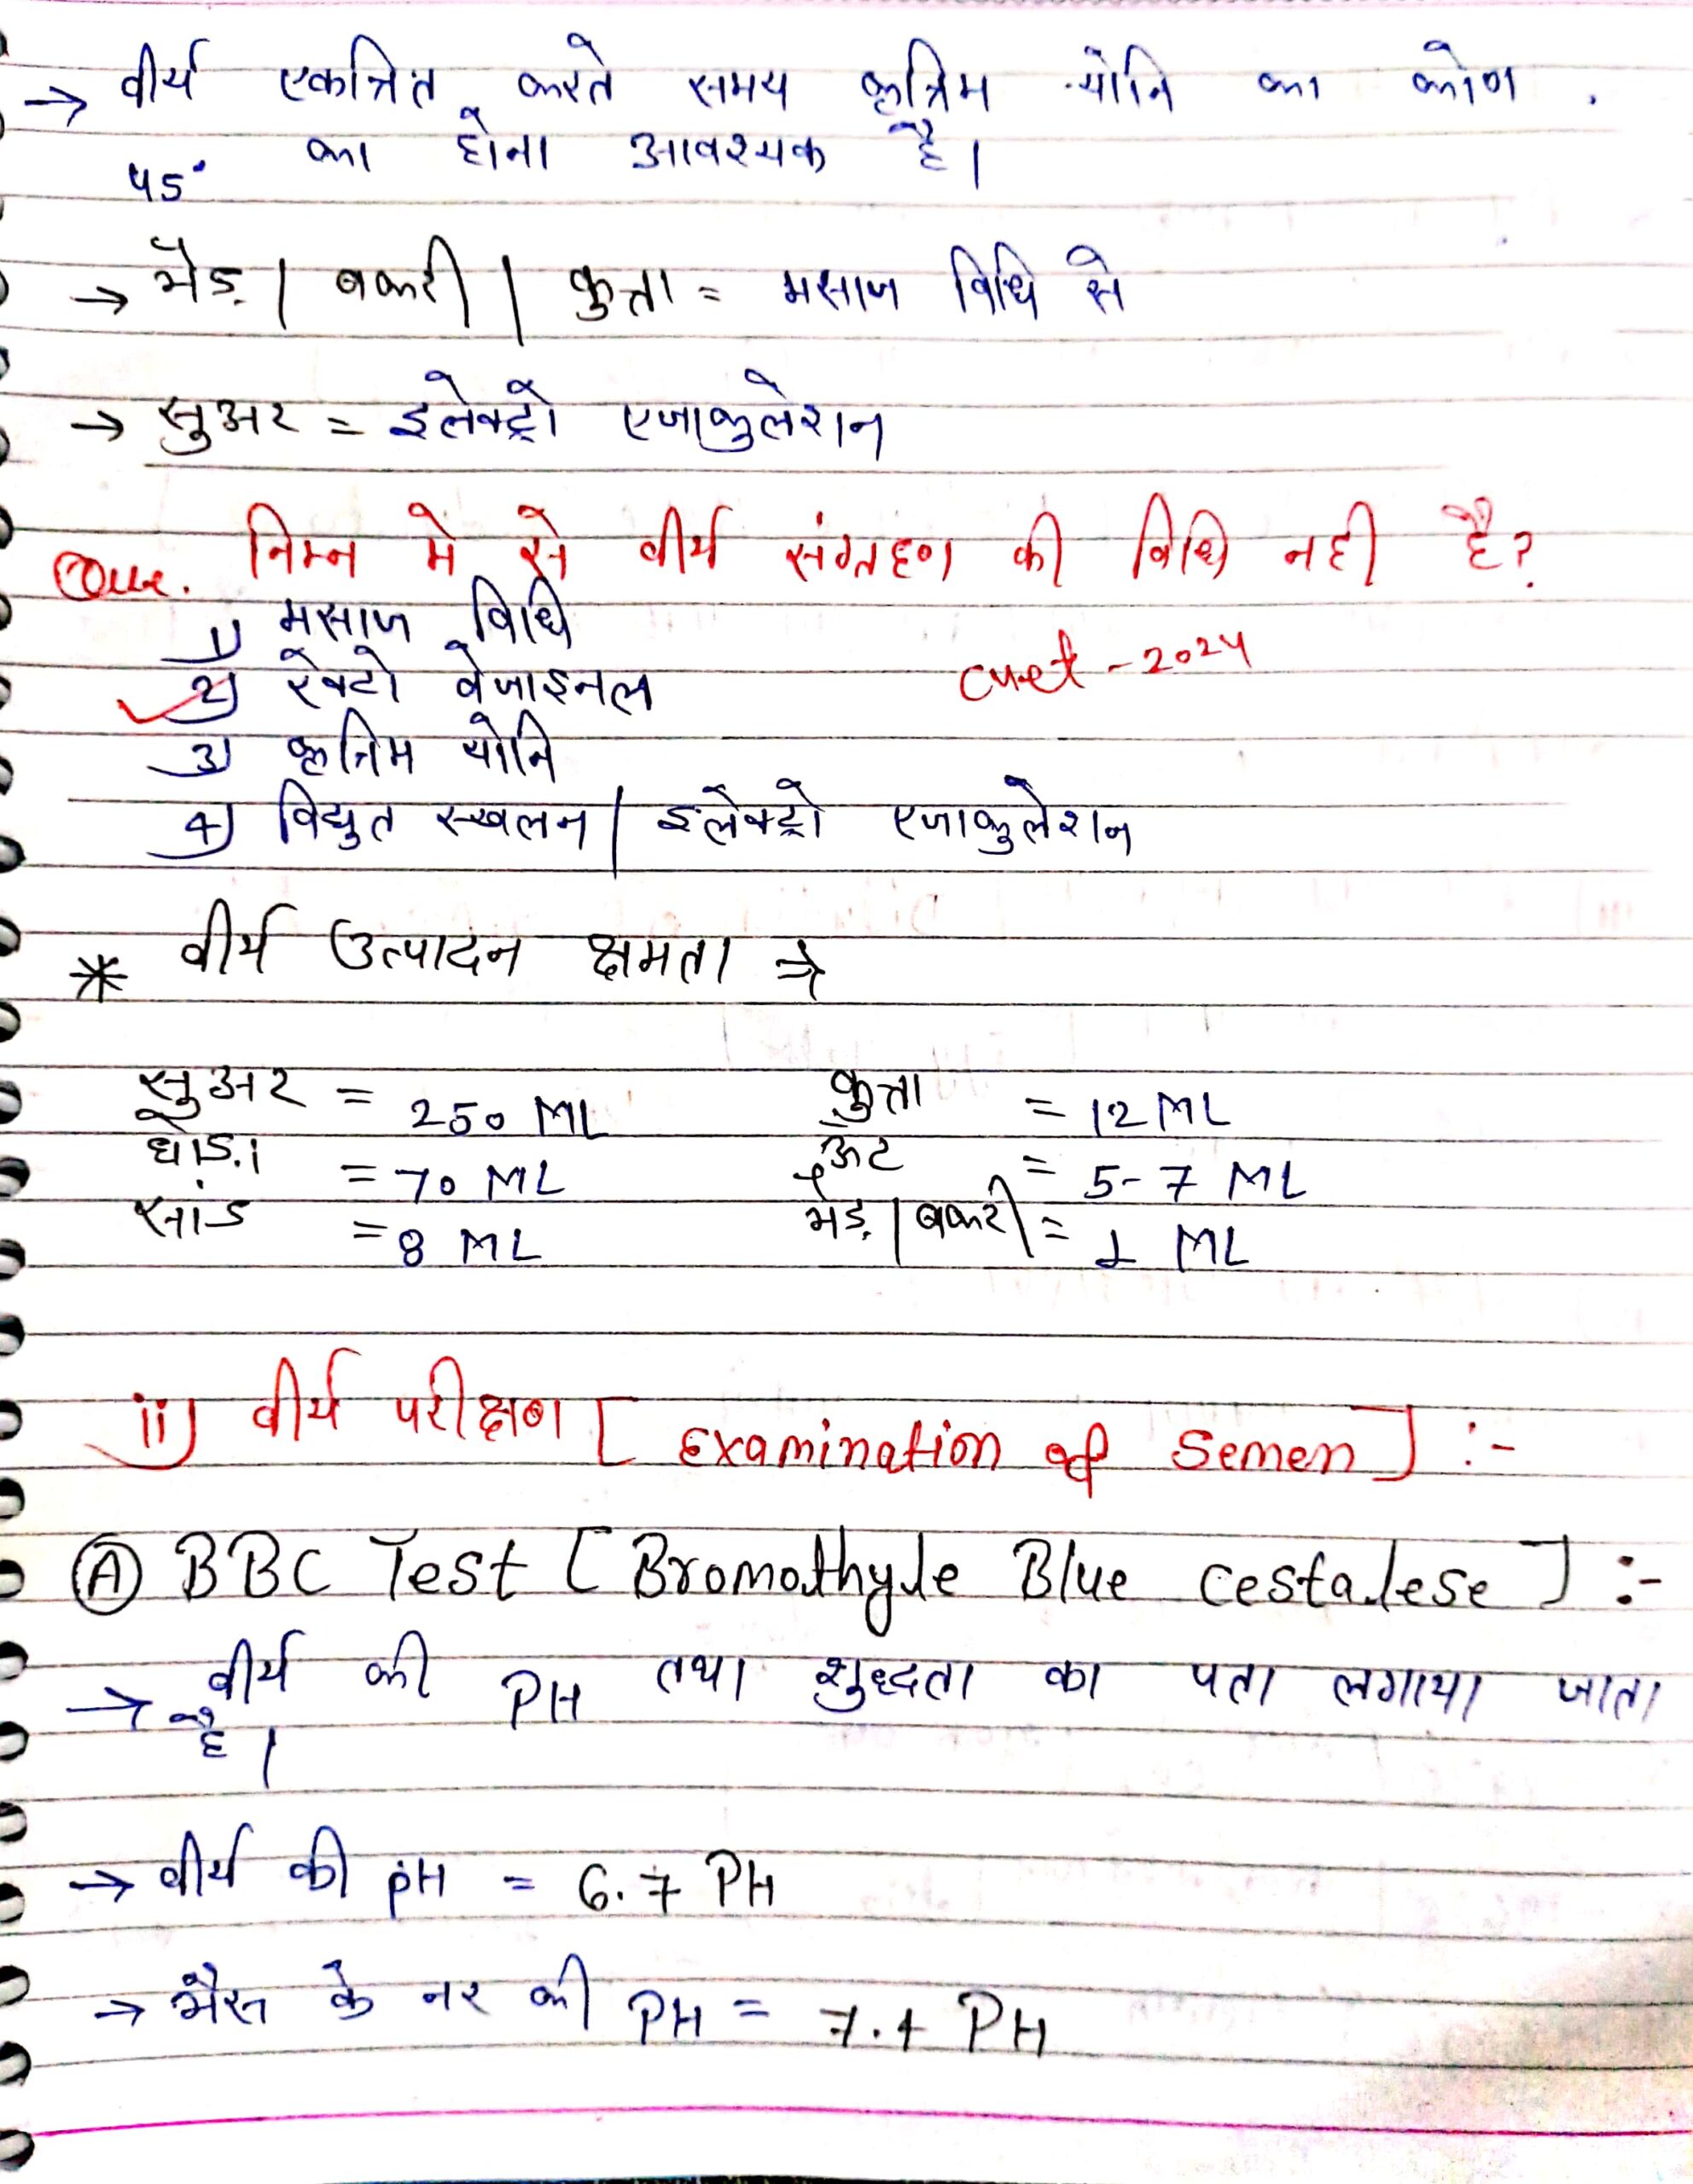 → वीर्य एकत्रित करते समय कृत्रिम योनि का कोण
45° का होना आवश्यक है।
→ भेड़ | बकरी | कुत्ता = मसाज विधि से
→ सुअर = इलेक्ट्रो एजाकुलेशन
Que. निम्न मे से वीर्य संग्रहण की विधि नही है?
1) मसाज विधि
cuet - 2024
2) रेक्टो वेजाइनल
3) कृत्रिम योनि
4) विद्युत स्खलन | इलेक्ट्रो एजाकुलेशन
* वीर्य उत्पादन क्षमता ⇒
सुअर = 250 ML कुत्ता = 12 ML
घोड़ा = 70 ML ऊँट = 5-7 ML
सांड = 8 ML भेड़ | बकरी = 1 ML
ii) वीर्य परीक्षण [Examination of Semen] :-
(A) BBC Test [Bromothyle Blue cestalese] :-
→ वीर्य की PH तथा शुद्धता का पता लगाया जाता
है।
→ वीर्य की pH = 6.7 PH
→ भैस के नर की PH = 7.4 PH